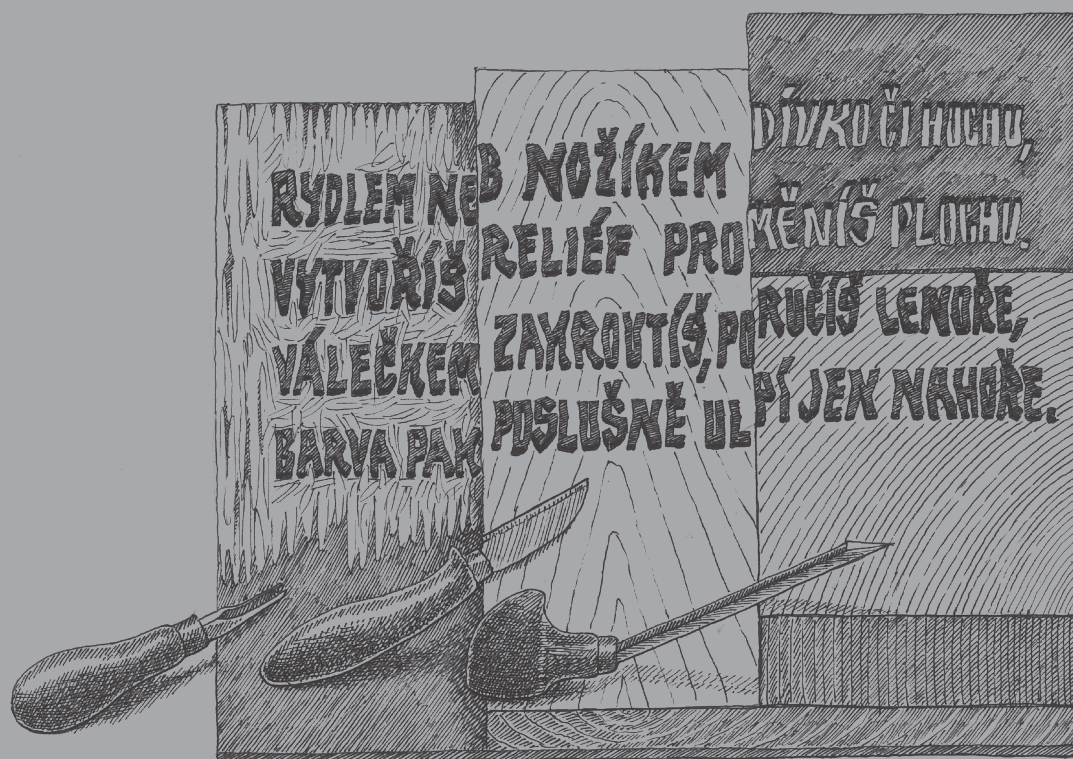 RYDLEM NEB NOŽÍKEM DÍVKO ČI HOCHU,
VYTVOŘÍŠ RELIÉF PROMĚNÍŠ PLOCHU.
VÁLEČKEM ZAKROUTÍŠ, PORUČÍŠ LENOŘE,
BARVA PAK POSLUŠNĚ ULPÍ JEN NAHOŘE.